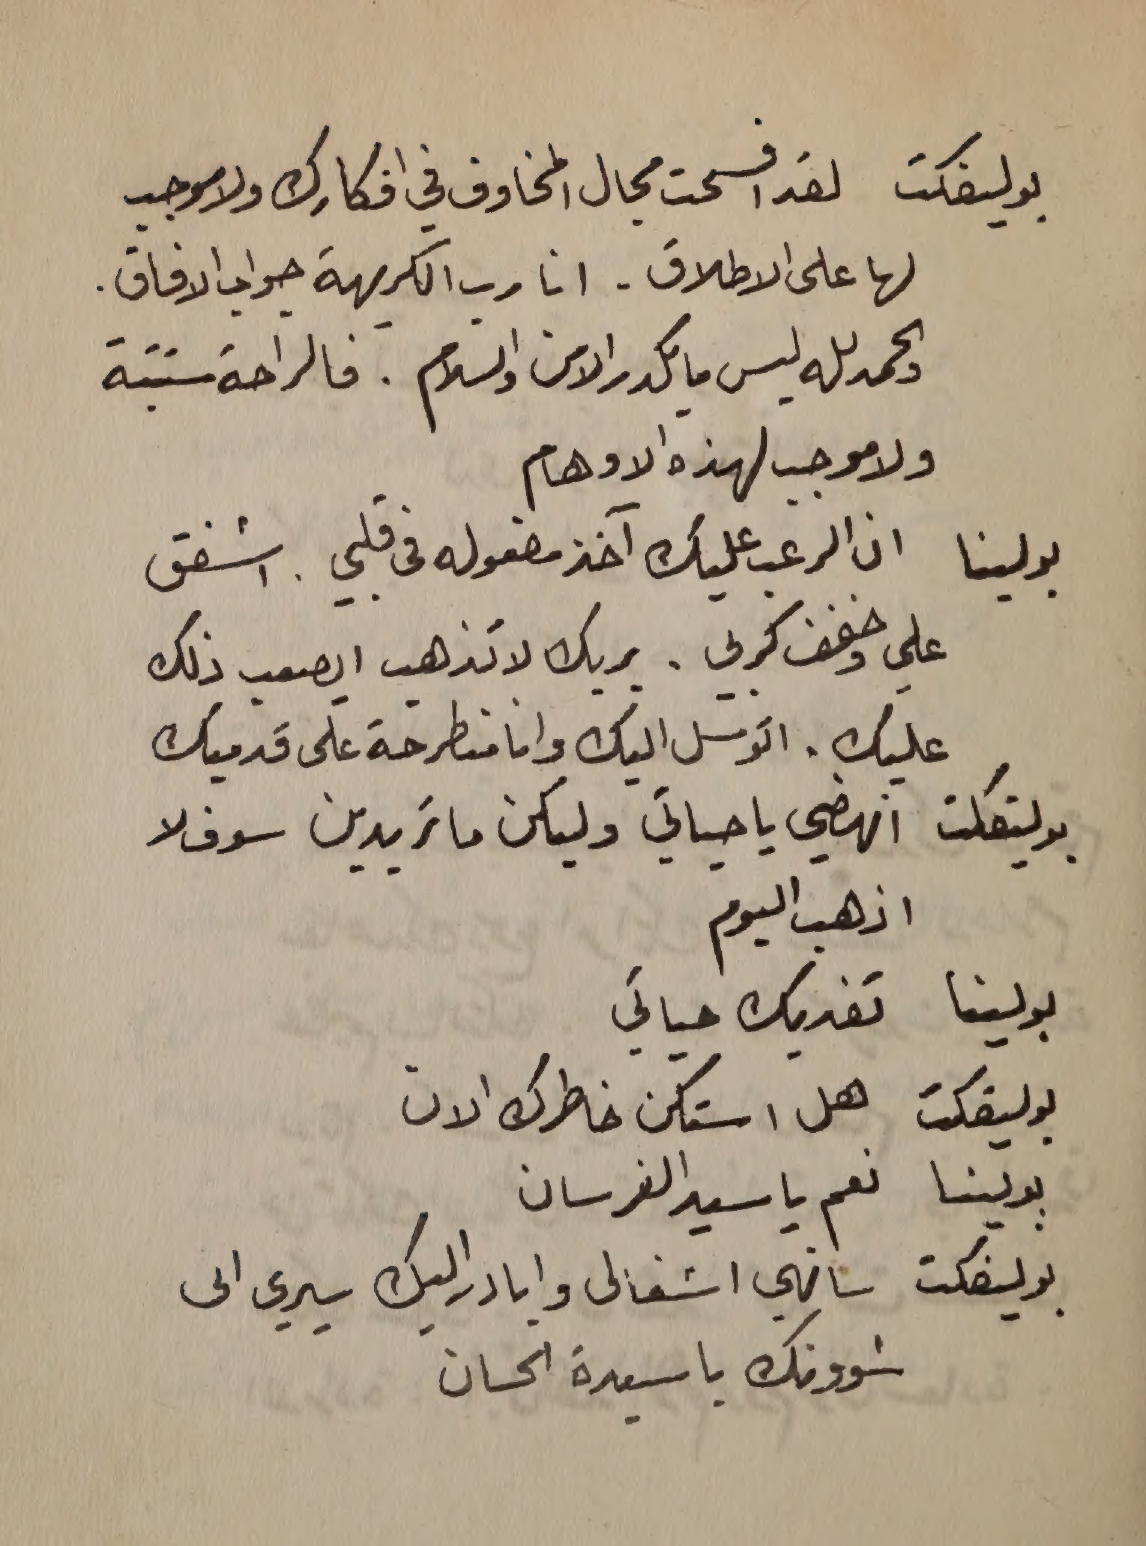 بوليفكت لقد افسحت مجال المخاوف في افكارك ولا موجب
لها على الاطلاق . انا رب الكريهة جواب الافاق .
والحمد لله ليس ما يكدر الامن والسلام . فالراحة مستتبة
ولا موجب لهذه الاوهام
بولينا ان الرعب عليك آخذ مفعوله في قلبي . اشفق
علي وخفف كربي . بربك لا تذهب ايصعب ذلك
عليك . اتوسل اليك وانا منطرحة على قدميك
بوليفكت انهضي يا حياتي وليكن ما تريدين سوف لا
اذهب اليوم
بولينا تفديك حياتي
بوليفكت هل استكن خاطرك الان
بولينا نعم يا سيد الفرسان
بوليفكت سانهي اشغالي وابادر اليك سيري الى
شوونك يا سيدة الحسان